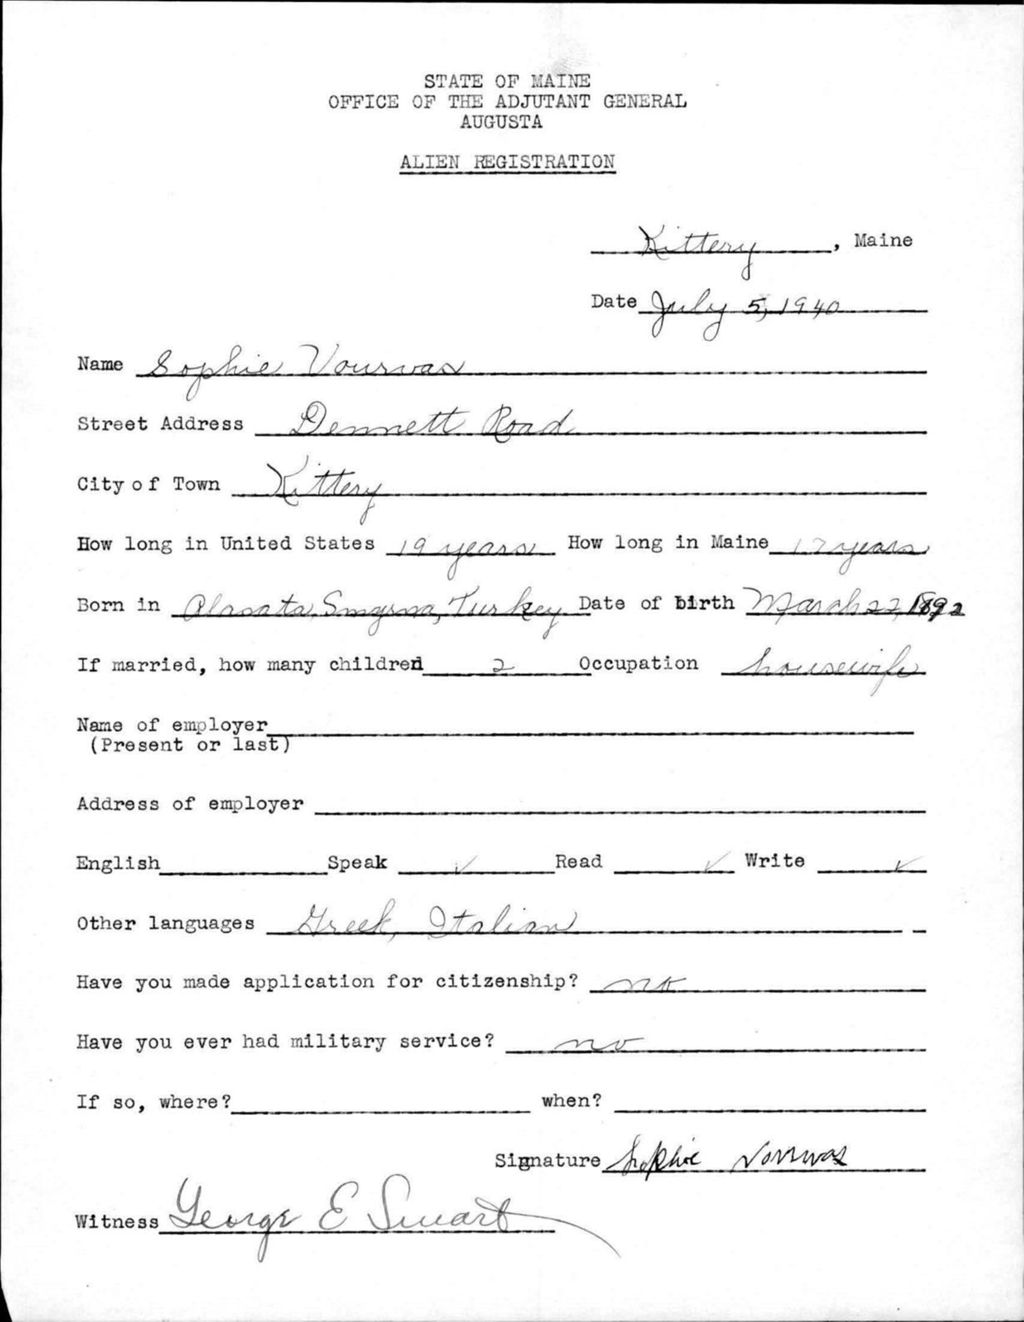 STATE OF MAINE
OFFICE OF THE ADJUTANT GENERAL
AUGUSTA
ALIEN REGISTRATION
Kittery, Maine
Date July 5, 1940
Name Sophie Vourvas
Street Address Dennett Road
City of Town Kittery
How long in United States 19 years How long in Maine 17 years
Born in Alasata, Smyrna, Turkey Date of birth March 22, 1892
If married, how many children 2 Occupation housewife
Name of employer
(Present or last)
Address of employer
English Speak ✓ Read ✓ Write ✓
Other languages Greek, Italian
Have you made application for citizenship? no
Have you ever had military service? no
If so, where? when?
Signature Sophie Vourvas
Witness George E